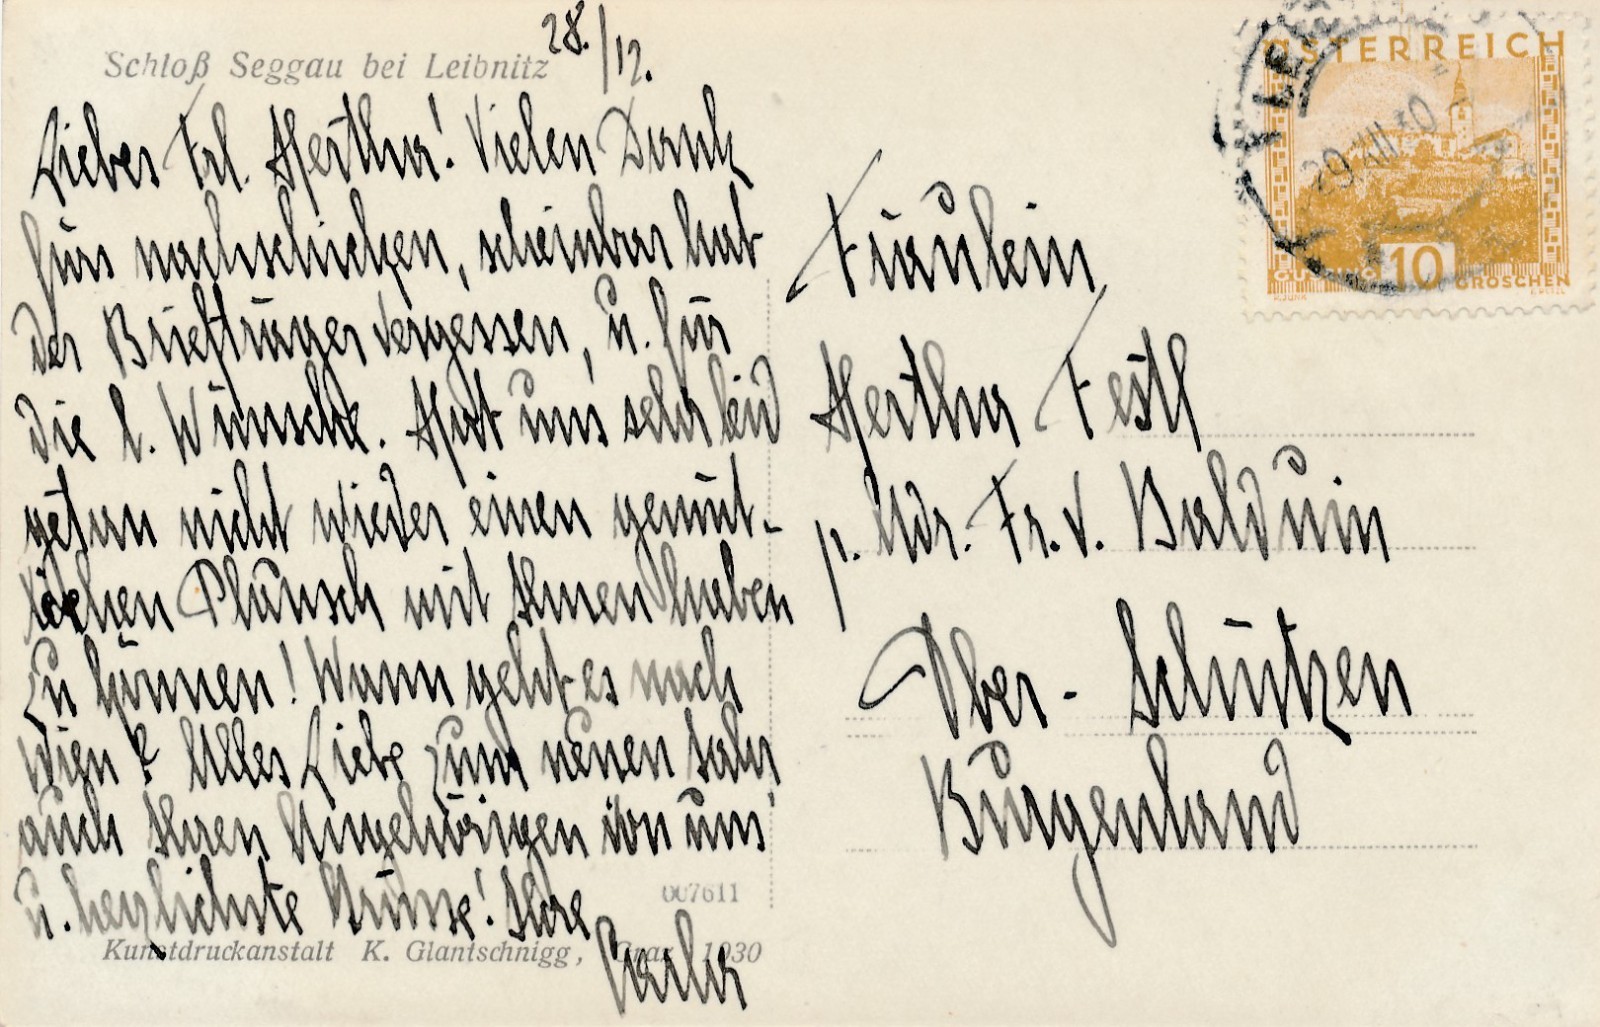 Schloß Seggau bei Leibnitz
28./12.
Liebes Frl. Hertha! Vielen Dank
fürs nachschicken, scheinbar hat
der Briefträger vergessen, u. für
die l. Wünsche. Hat uns sehr leid
getan nicht wieder einen gemüt-
lichen Plausch mit Ihnen haben
zu können! Wann geht es nach
Wien? Alles Liebe zum neuen Jahr
auch Ihren Angehörigen von uns
u. herzlichste Grüsse! Ihre
Carla
007611
Kunstdruckanstalt K. Glantschnigg, Graz 1930
ÖSTERREICH
GÜSSING 10 GROSCHEN
Fräulein
Hertha Festl
p. Adr. Fr. v. Balduin
Ober-Schützen
Burgenland